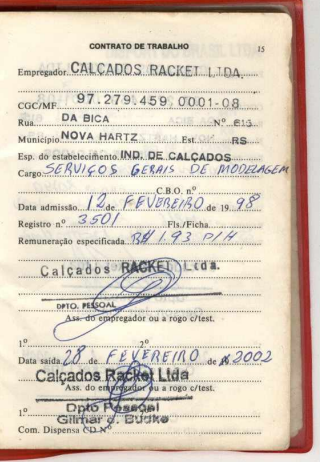 CONTRATO DE TRABALHO 15
Empregador CALÇADOS RACKET LTDA.
CGC/MF 97.279.459 0001-08
Rua DA BICA Nº 615
Município NOVA HARTZ Est. RS
Esp. do estabelecimento IND. DE CALÇADOS
Cargo SERVIÇOS GERAIS DE MODELAGEM
C.B.O. nº
Data admissão 12 de FEVEREIRO de 1998
Registro nº 3501 Fls./Ficha
Remuneração especificada R$ 1.93 P/H
Calçados RACKET Ltda.
DPTO. PESSOAL
Ass. do empregador ou a rogo c/test.
1º 2º
Data saída 28 de FEVEREIRO de 2002
Calçados Racket Ltda
Ass. do empregador ou a rogo c/test.
Dpto Pessoal
1º Gilmar Budke
Com. Dispensa CD Nº